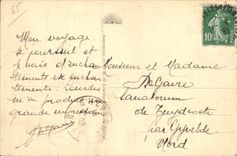 65
Mon voyage
se poursuit et
je vais d'enchan
tements en enchan
tements. Lourdes
m'a produit une
grande impression
Monsieur et Madame
Sanatorium
de Zuydcoote
par Ghyvelde
Nord
10